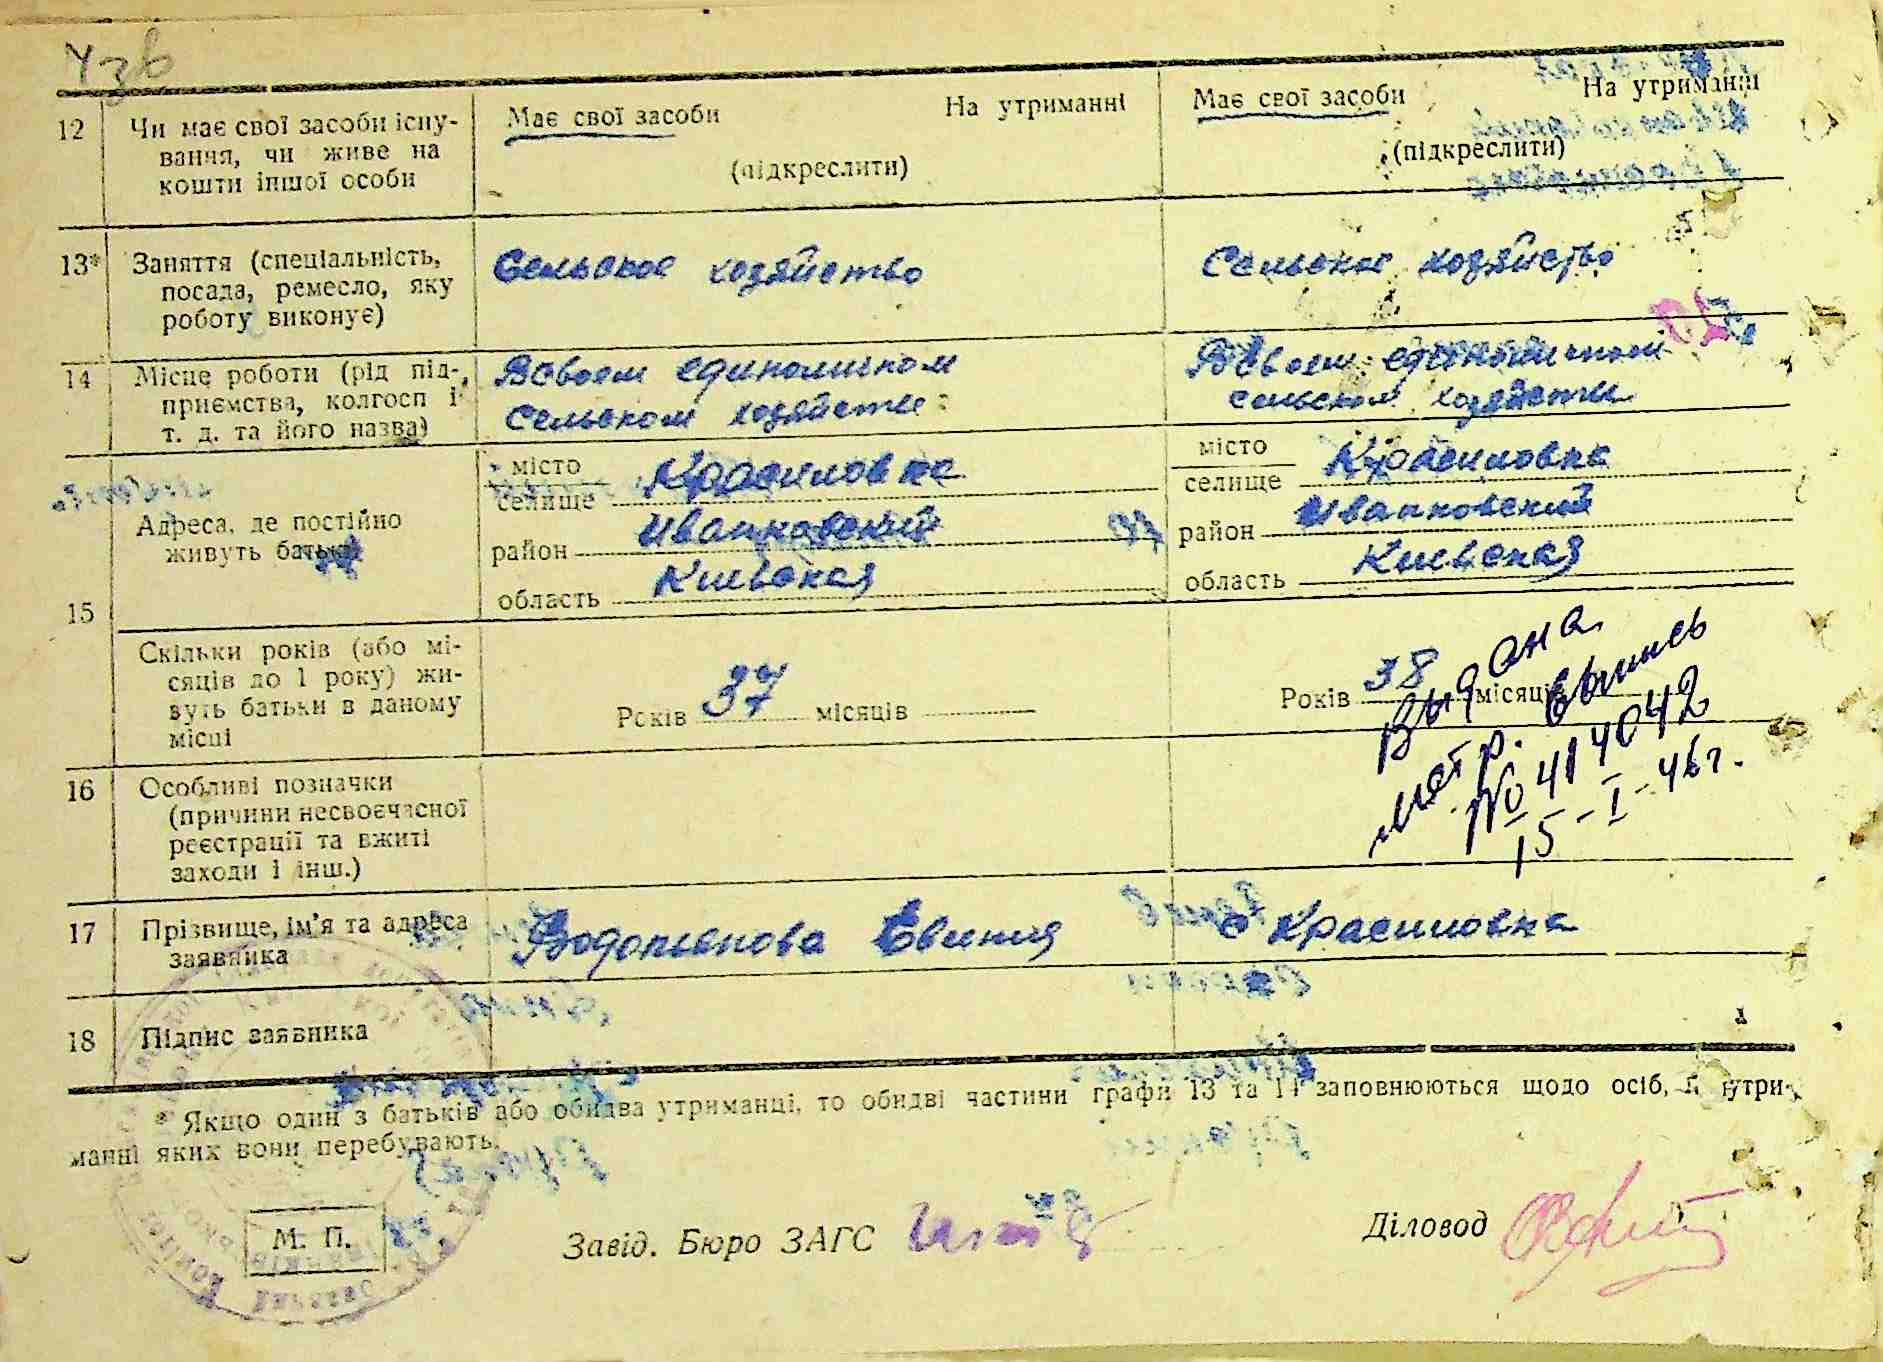 12 Чи має свої засоби існу-
вання, чи живе на
кошти іншої особи
Має свої засоби На утриманні
(підкреслити)
Має свої засоби На утриманні
(підкреслити)
13* Заняття (спеціальність,
посада, ремесло, яку
роботу виконує)
Сельское хозяйство
Сельское хозяйство
14 Місце роботи (рід під-
приємства, колгосп і
т. д. та його назва)
В своем единоличном
сельском хозяйстве
В своем единоличном
сельском хозяйстве
15
Адреса, де постійно
живуть батьки
місто
селище Красиловка
район Иванковский
область Киевская
місто
селище Красиловка
район Иванковский
область Киевская
Скільки років (або мі-
сяців до 1 року) жи-
вуть батьки в даному
місці
Років 37 місяців
Років 38 місяців
Выдана
метр. выпись
№ 414042
15-I-46г.
16 Особливі позначки
(причини несвоєчасної
реєстрації та вжиті
заходи і інш.)
17 Прізвище, ім'я та адреса
заявника
Водопьянова Евгения с Красиловка
18 Підпис заявника
* Якщо один з батьків або обидва утриманці, то обидві частини графи 13 та 14 заповнюються щодо осіб, на утри-
манні яких вони перебувають.
М. П.
Завід. Бюро ЗАГС
Діловод